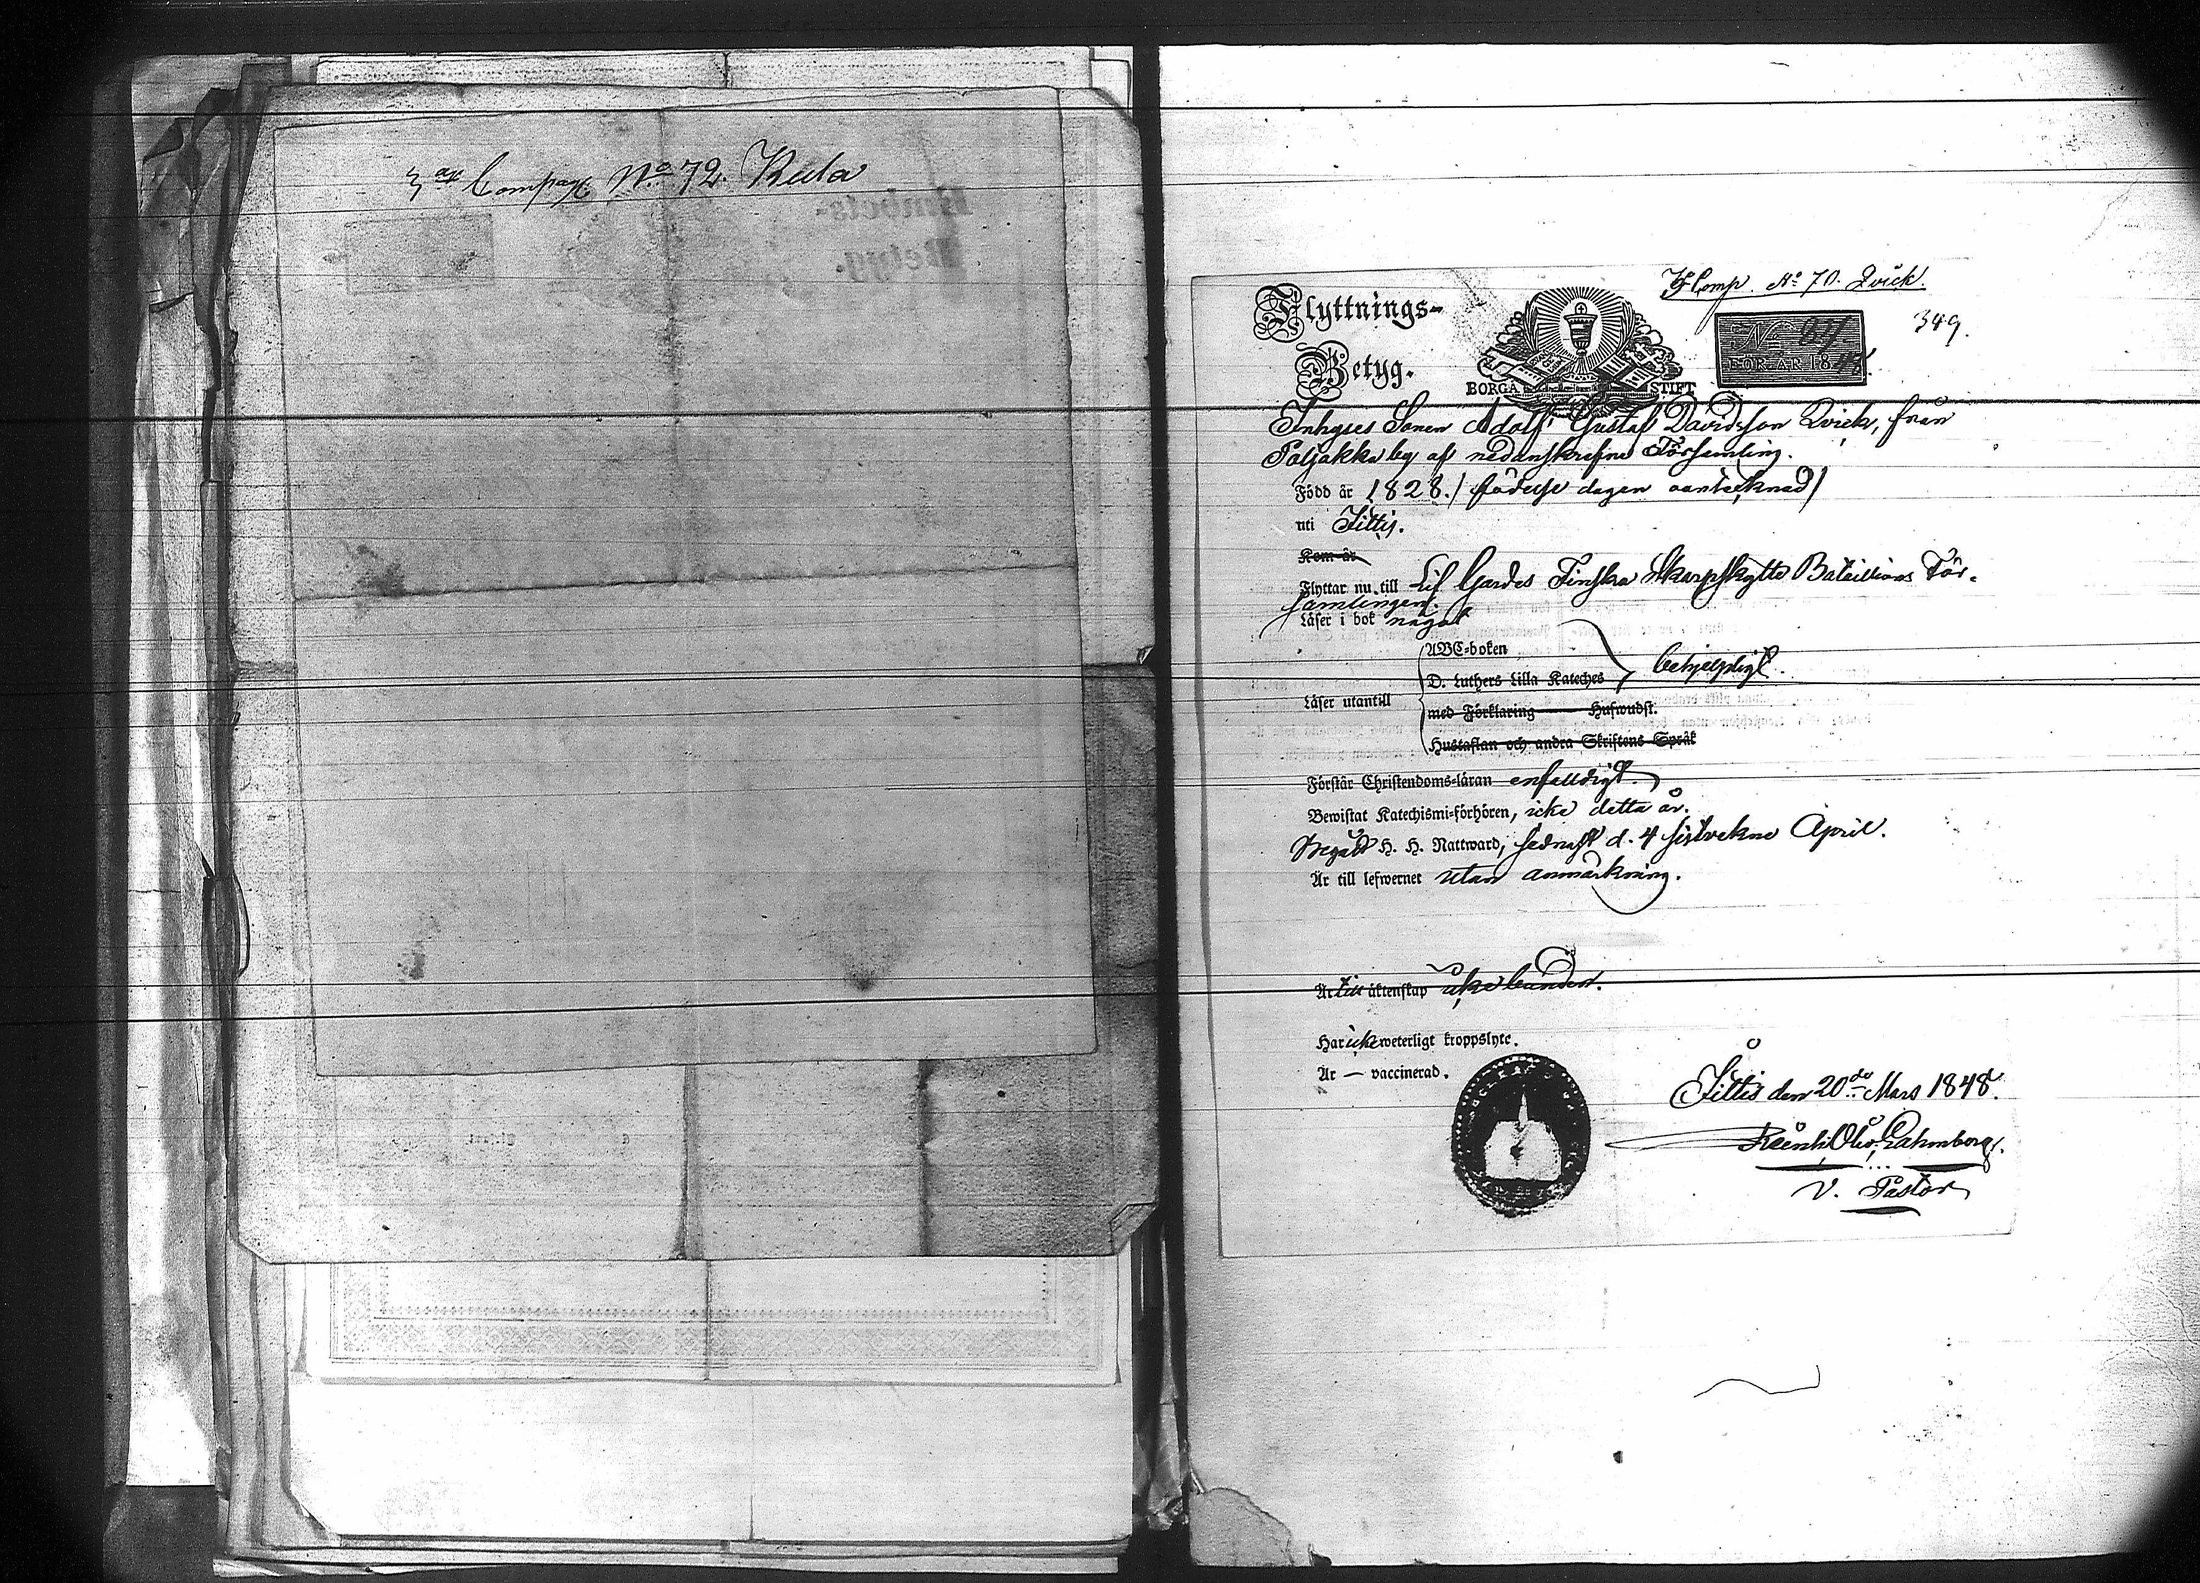 3:de Compagn. No 72. Kula
Ambets-
Betyg.
Comp. No 70. Qvick.
349.
Flyttnings-
Betyg.
BORGÅ STIFT
No 27
FÖR ÅR 1848
Inhyses Sonen Adolf Gustaf Davidsson Qvick, från
Poljakka by af nedanskrefne Församling.
Född år 1828. / födelse dagen oantecknad /
uti Jittis.
Kom år
Flyttar nu till Lif Gardes Finska Skarpskytte Bataillions För-
samlingen.
Läser i bok något
ABC-boken
D. Luthers Lilla Kateches
behjelpligt.
Läser utantill
med Förklaring Hufwudst.
Hustaflan och andra Skriftens Språk
Förstår Christendoms-läran enfaldigt.
Bewistat Katechismi-förhören, icke detta år.
Begått H. H. Nattward, sednast d. 4 sistvekne April.
Är till lefwernet utan anmärkning.
Är till äktenskap icke bunden.
Har icke weterligt kroppslyte.
Är — vaccinerad.
Jittis den 20de Mars 1848.
Reinh. Ahrenberg.
V. Pastor